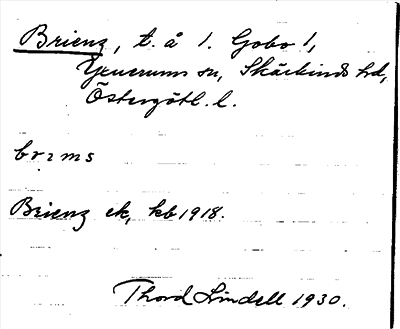 Brienz, t. å 1. Gobo 1,
Yxnerums sn, Skärkinds hd,
Östergötl. l.
brɪms
Brienz ek, kb 1918.
Thord Lindell 1930.